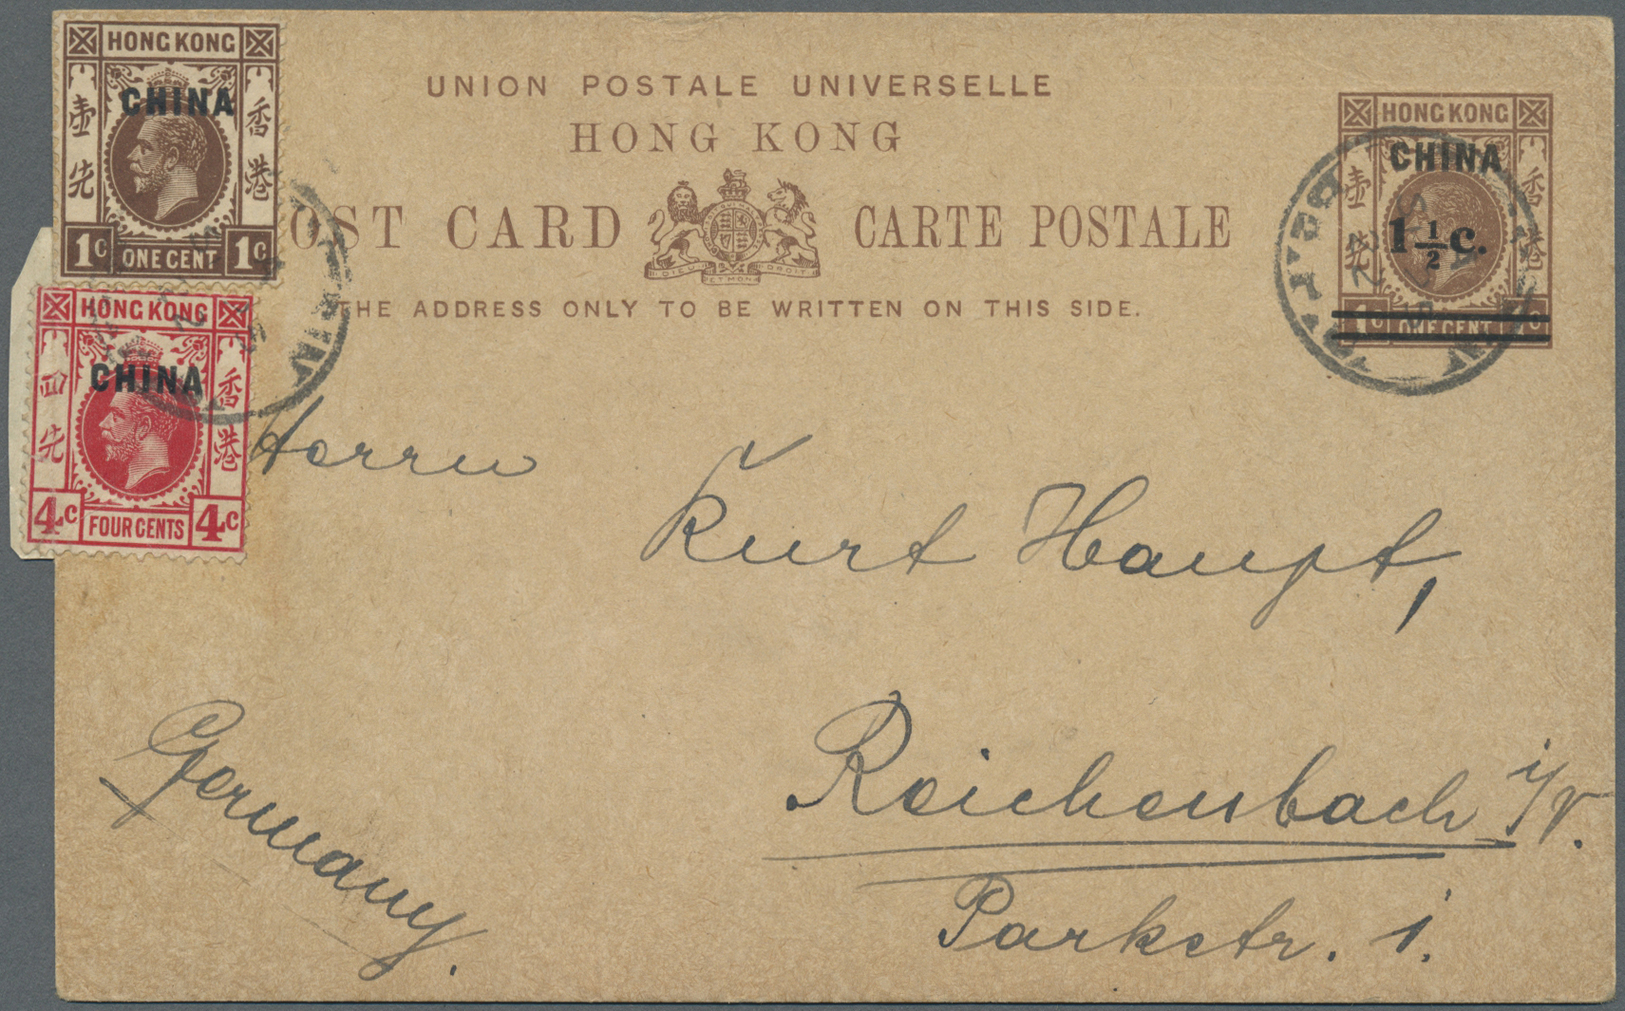 HONG KONG
CHINA
壹先
香港
1c ONE CENT 1c
HONG KONG
CHINA
四先
香港
4c FOUR CENTS 4c
UNION POSTALE UNIVERSELLE
HONG KONG
OST CARD CARTE POSTALE
DIEU DROIT
ET MON
THE ADDRESS ONLY TO BE WRITTEN ON THIS SIDE.
HONG KONG
CHINA
壹先
香港
1½c.
1c ONE CENT 1c
Herrn
Kurt Haupt,
Reichenbach i/V.
Parkstr. 1.
Germany.